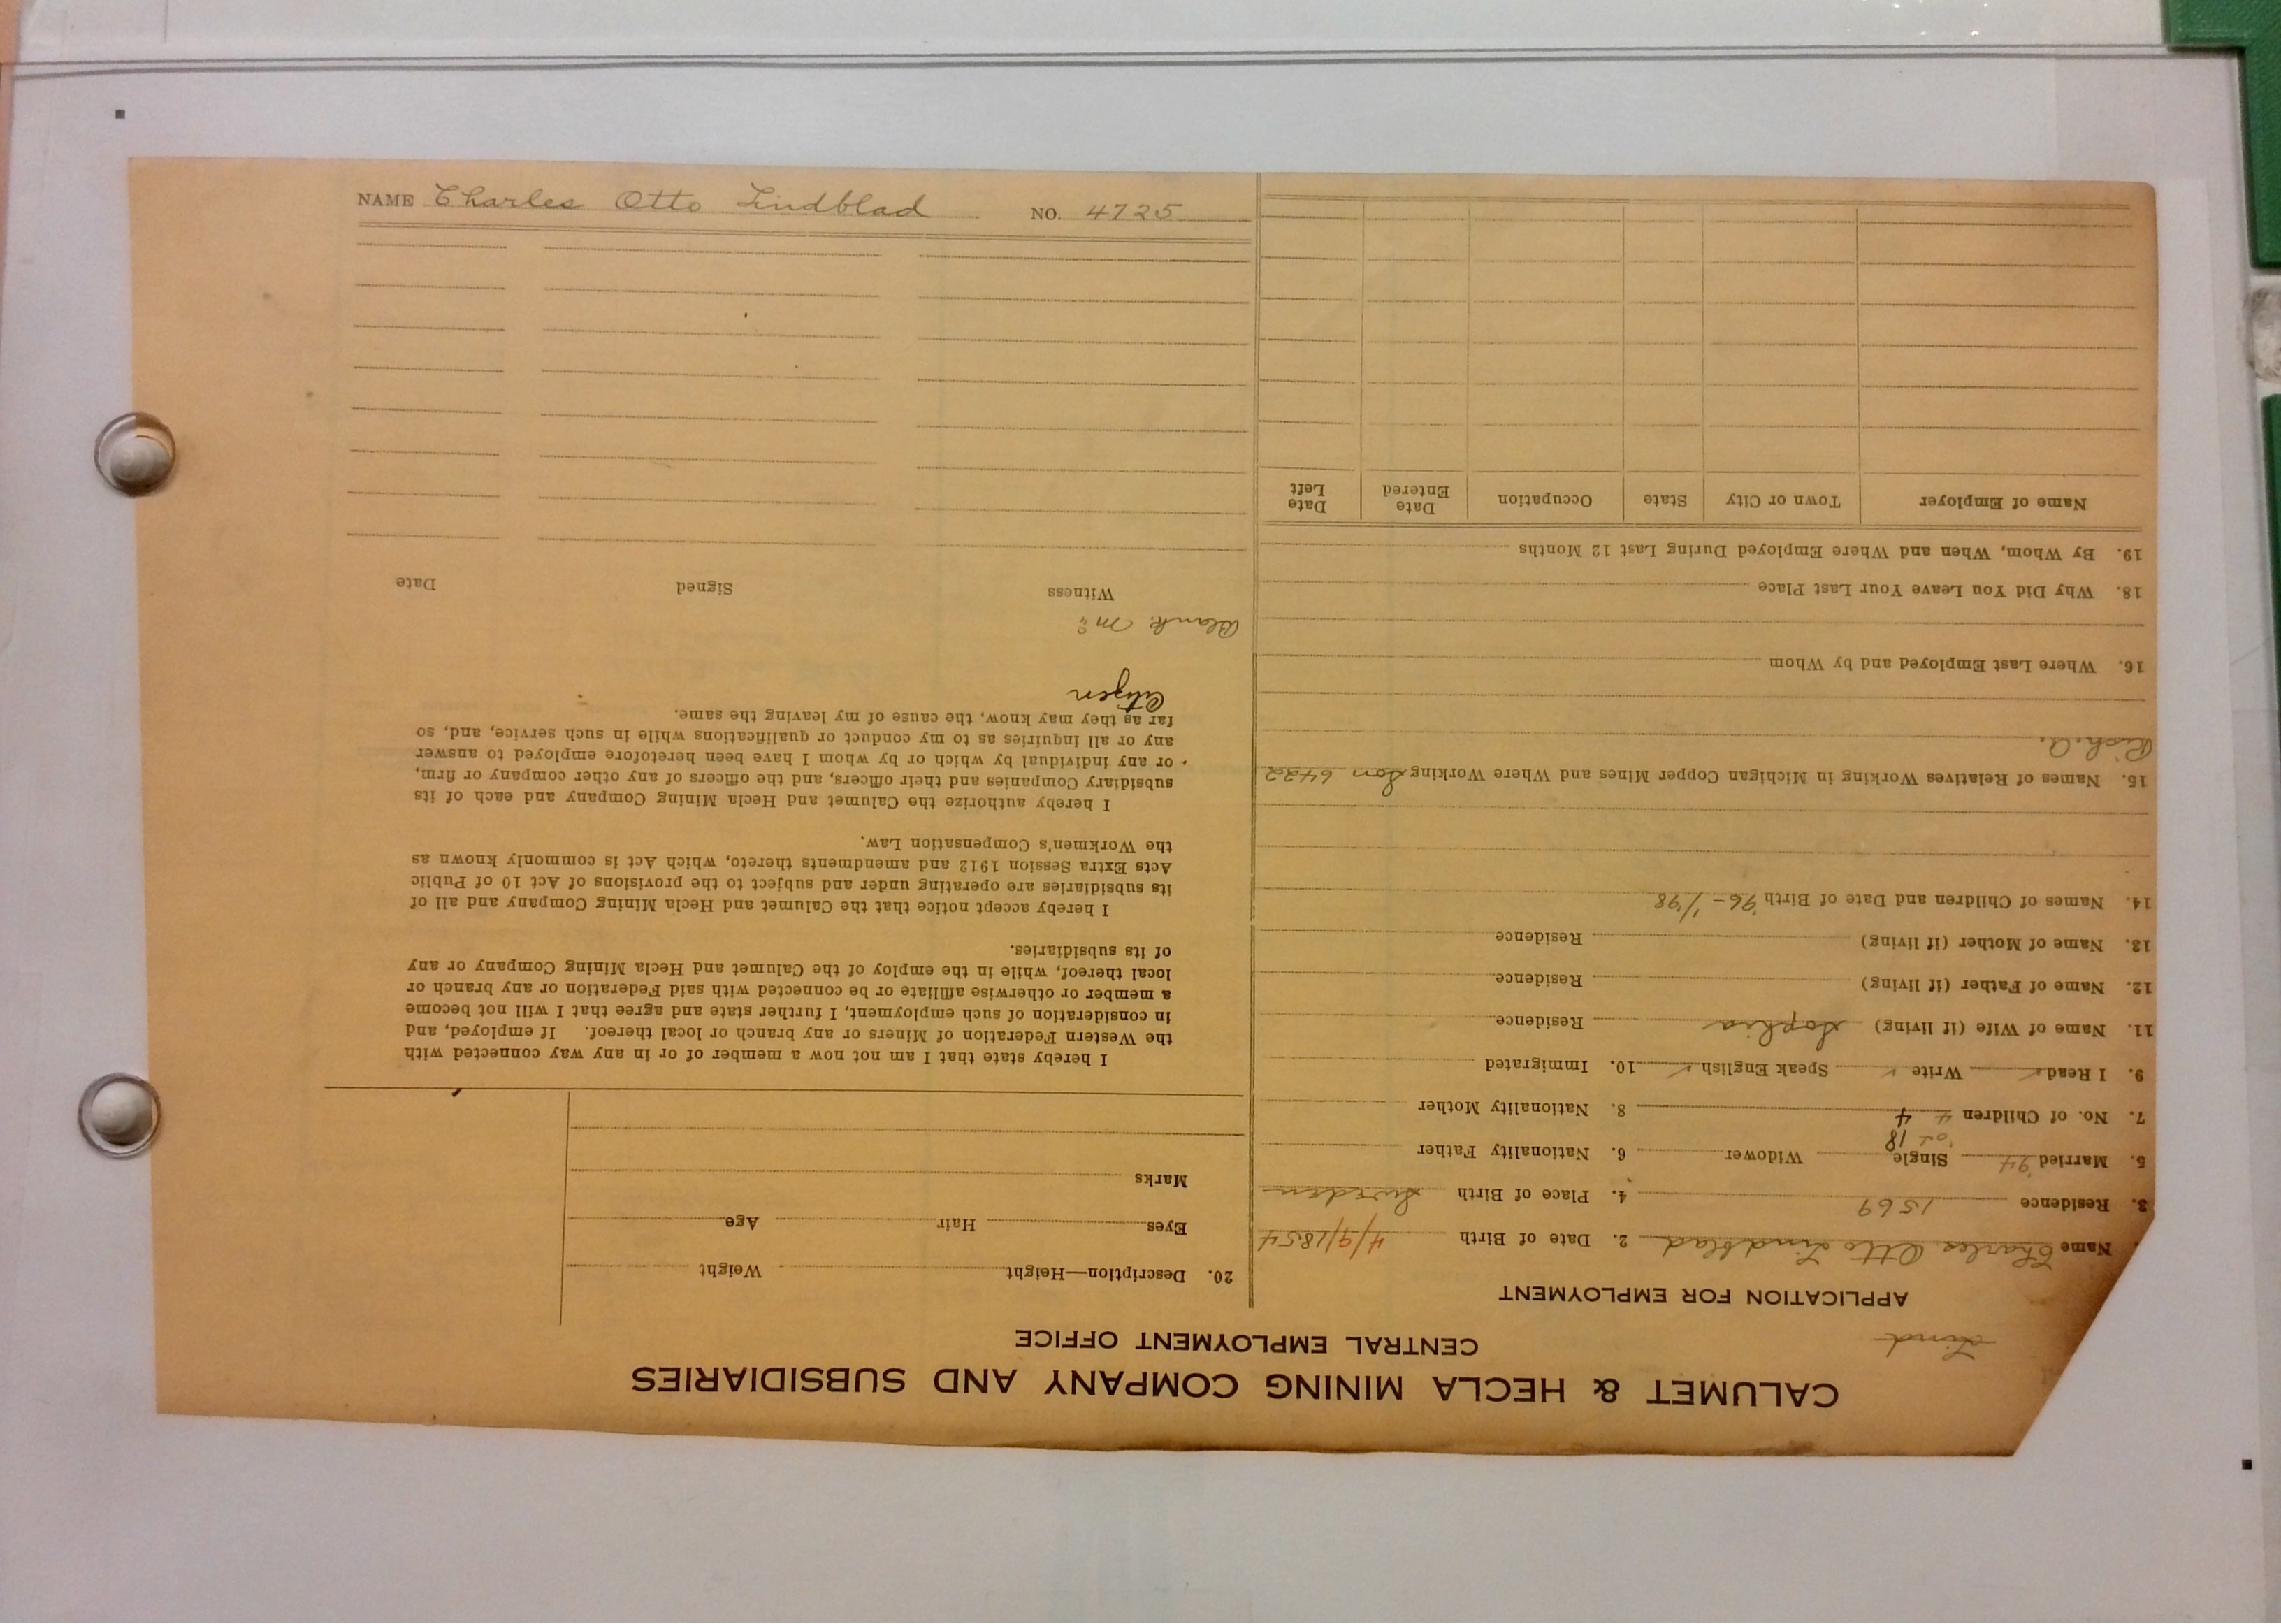 CALUMET & HECLA MINING COMPANY AND SUBSIDIARIES
CENTRAL EMPLOYMENT OFFICE
Lind
APPLICATION FOR EMPLOYMENT
Name Charles Otto Lindblad 2. Date of Birth 4/9/1854
3. Residence 1569 4. Place of Birth Sweden
5. Married '94 Single Widower 6. Nationality Father
18
7. No. of Children 4 4 8. Nationality Mother
9. I Read ✓ Write ✓ Speak English ✓ 10. Immigrated
11. Name of Wife (if living) Sophia Residence
12. Name of Father (if living) Residence
13. Name of Mother (if living) Residence
14. Names of Children and Date of Birth '96 - 1/'98
15. Names of Relatives Working in Michigan Copper Mines and Where Working Son 6422
16. Where Last Employed and by Whom
18. Why Did You Leave Your Last Place
19. By Whom, When and Where Employed During Last 12 Months
Name of Employer Town or City State Occupation Date Entered Date Left
20. Description—Height Weight
Eyes Hair Age
Marks
I hereby state that I am not now a member of or in any way connected with
the Western Federation of Miners or any branch or local thereof. If employed, and
in consideration of such employment, I further state and agree that I will not become
a member or otherwise affiliate or be connected with said Federation or any branch or
local thereof, while in the employ of the Calumet and Hecla Mining Company or any
of its subsidiaries.
I hereby accept notice that the Calumet and Hecla Mining Company and all of
its subsidiaries are operating under and subject to the provisions of Act 10 of Public
Acts Extra Session 1912 and amendments thereto, which Act is commonly known as
the Workmen's Compensation Law.
I hereby authorize the Calumet and Hecla Mining Company and each of its
subsidiary Companies and their officers, and the officers of any other company or firm,
or any individual by which or by whom I have been heretofore employed to answer
any or all inquiries as to my conduct or qualifications while in such service, and, so
far as they may know, the cause of my leaving the same.
Citizen
Witness Signed Date
NAME Charles Otto Lindblad NO. 4725